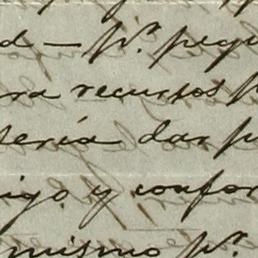 d — pr. pequ
ra recursos p
tería dar p
igo, y confor
mismo pr.